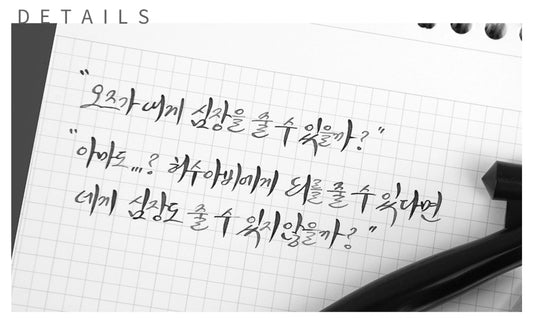 DETAILS
"오즈가 내게 심장을 줄 수 있을까?"
"아마도...? 허수아비에게 뇌를 줄 수 있다면
네게 심장도 줄 수 있지않을까?"